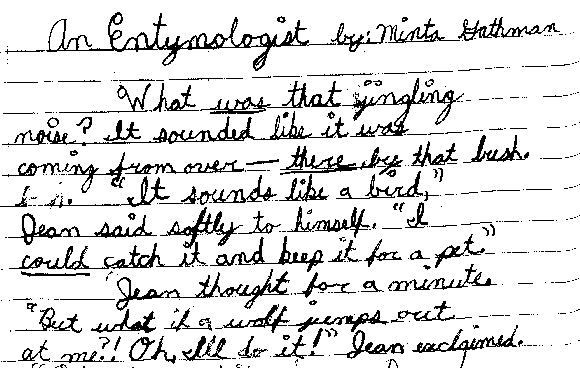 An Entymologist by: Minta Gathman
What was that jingling
noise? It sounded like it was
coming from over — there by that bush.
"It sounds like a bird,"
Jean said softly to himself. "I
could catch it and keep it for a pet."
Jean thought for a minute.
"But what if a wolf jumps out
at me?! Oh, I'll do it!" Jean exclaimed.